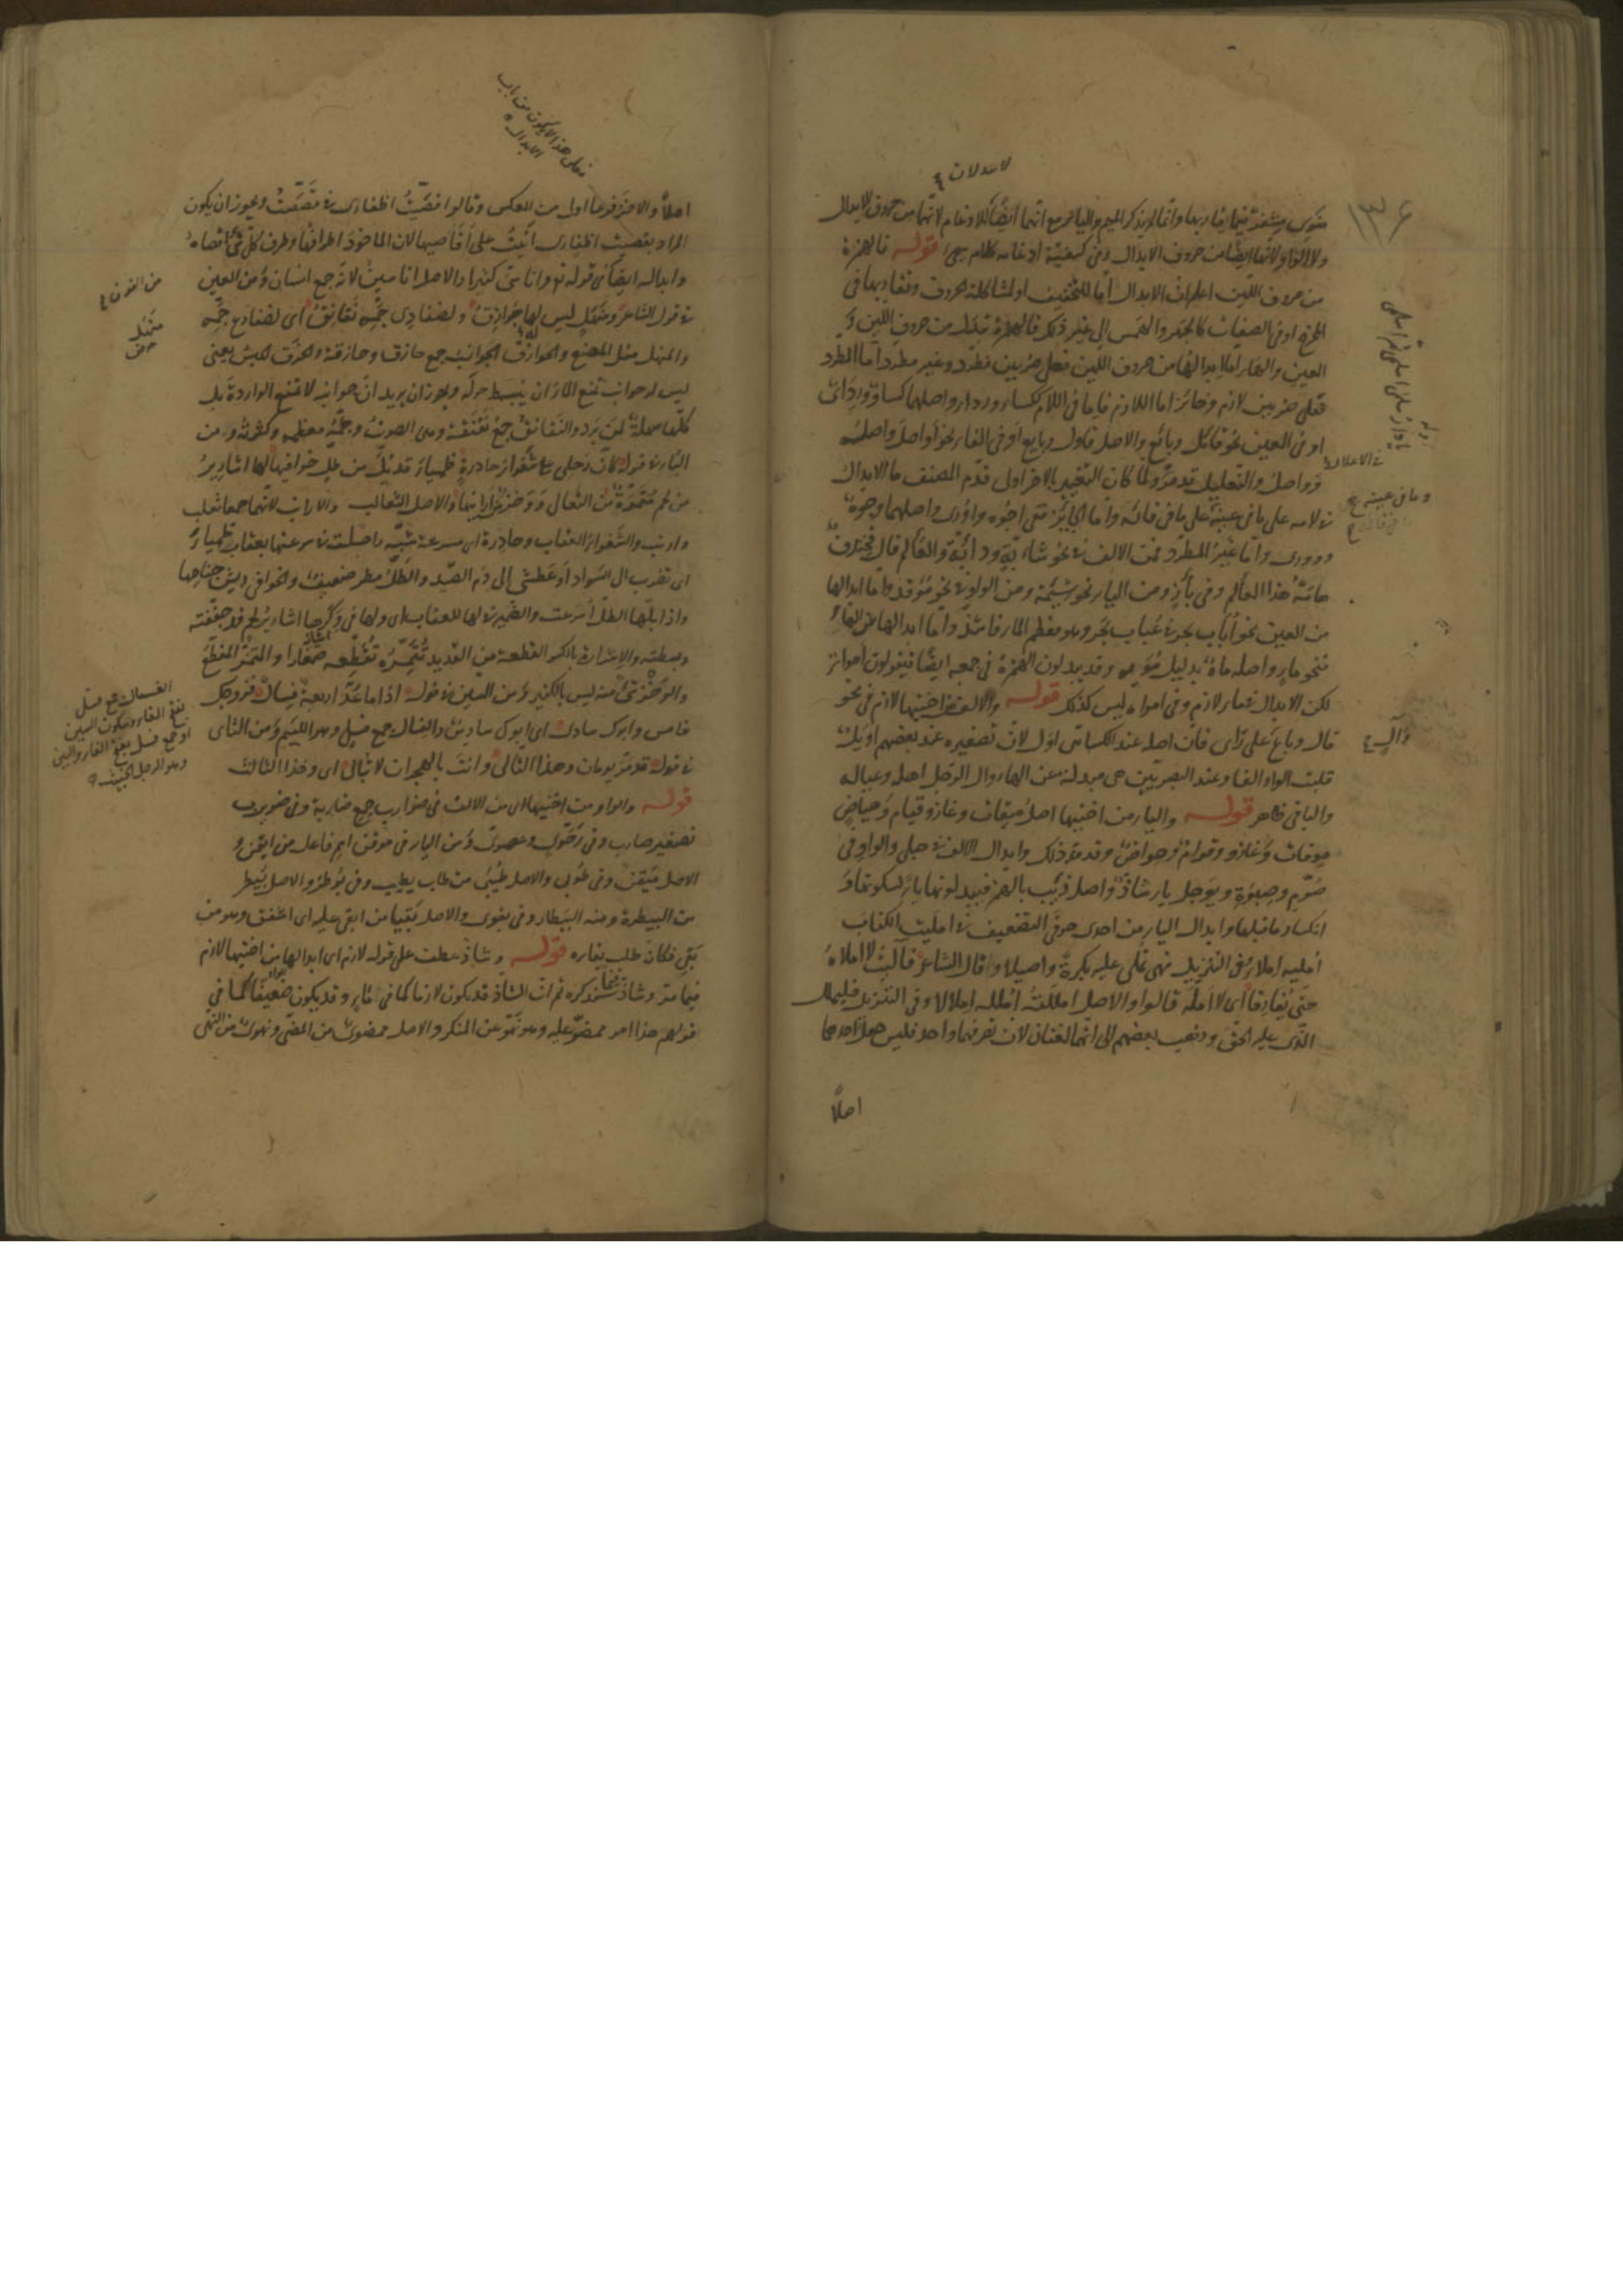 ضوى مشفر فيما يقاربها وانما لم يذكر الميم والياء مع انهما ايضا للادغام لانهما من حروف الابدال
ايضا من حروف الابدال وفى كيفية ادغامه كلام يجئ قوله فالهمزة
من حروف اللين اعلم ان الابدال اما للتخفيف او لمشاكلة الحروف وتقاربها فى
المخرج او فى الصفات كالجهر والهمس الى غير ذلك فالهمزة تبدل من حروف اللين و
العين والهاء اما ابدالها من حروف اللين فعلى ضربين مطرد وغير مطرد اما المطرد
فعلى ضربين لازم وجائز اما اللازم فاما فى اللام ككساء ورداء واصلهما كساو ورداى
او فى العين نحو قائل وبائع والاصل قاول وبايع او فى الفاء نحو اواصل واصله
وواصل والتعليل قد مر ولما كان التغيير بالاخر اولى قدم المصنف ما الابدال
فى لامه على ما فى عينه على ما فى فائه واما الجائز ففى اجوه واورى واصلهما وجوه
وورى واما غير المطرد فمن الالف فى نحو شأبة ودأبة والعألم قال فخندف
هامة هذا العألم وفى بأز ومن الياء نحو شئمة ومن الواو فى نحو مؤقد واما ابدالها
من العين نحو اباب بحر فى عباب بحر وهو معظم الماء فاشذ واما ابدالها من الهاء
فنحو ماء واصله ماه بدليل مويه وقد يبدلون الهمزة فى جمعه ايضا فيقولون امواء
لكن الابدال فى ماء لازم وفى امواء ليس كذلك قوله والالف من اختيها لازم فى نحو
قال وباع على رأى فان اصله عند الكسائى اول لان تصغيره عند بعضهم اويل
قلبت الواو الفا وعند البصريين هى مبدلة عن الهاء وآل الرجل اهله وعياله
والباقى ظاهر قوله والياء من اختيها اصل ميقات وغاز وقيام وحياض
موقات وغازو وقوام وحواض وقد مر ذلك وابدال الالف فى حبلى والواو فى
صوم وصبوة وييجل ياء شاذ واصل ذيب بالهمز فيبدلونها ياء لسكونها و
انكسار ما قبلها وابدال الياء من احدى حرفى التضعيف فى امليت الكتاب
امليه املاء وفى التنزيل فهى تملى عليه بكرة واصيلا وقال الشاعر فآليت لا املاه
حتى يفارقا اى لا امله قالوا والاصل امللت املله املالا وفى التنزيل فليملل
الذى عليه الحق وذهب بعضهم الى انهما لغتان لان تصرفهما واحد فليس جعل احدهما
اصلا
١٣٤
فى الاعلال
وما فى عينه
وآل
اصلا والاخر فرعا اولى من العكس وقالوا قصيت اظفارى فى قصصت ويجوز ان يكون
المراد بقصيت اظفارى اتيت على اقاصيها لان الماخوذ اطرافها وطرف كل شئ اقصاه
وابدالها ايضا فى قوله تع واناسى كثيرا والاصل اناسين لانه جمع انسان ومن العين
فى قول الشاعر ومنهل ليس له حوازق ولضفادى جمه نقانق اى لضفادع جمه
والمنهل مثل المصنع والحوازق الجوانب جمع حازق وحازقة والحزق الحبس يعنى
ليس له جوانب تمنع الماء ان ينبسط حوله ويجوز ان يريد ان جوانبه لا تمنع الواردة بل
كلها سهلة لمن يرد والنقانق جمع نقنقة وهى الصوت وجمه معظمه وكثرته ومن
الباء فى قوله كان رحلى على شغواء حادرة ظمياء قد بل من طل خوافيها لها اشارير
من لحم تتمره من الثعالى ووخز من ارانيها والاصل الثعالب والارانب لانهما جمعا ثعلب
وارنب والشغواء العقاب وحادرة اى مسرعة شبه راحلته فى سرعتها بعقاب ظمياء
اى تضرب الى السواد او عطشى الى دم الصيد والطل مطر ضعيف والخوافى ريش جناحها
واذا بلها الطل اسرعت والضمير فى لها للعقاب اى ولها فى وكرها اشارير لحم قد جففته
وبسطته والاشرارة بالكسر القطعة من القديد تتمره تقطعه صغارا والتمر المقطع
والوخز شئ منه ليس بالكثير ومن السين فى قوله اذا ما عد اربعة فسال فزوجك
خامس وابوك سادى اى ابوك سادس والفسال جمع فسل وهو اللئيم ومن الثاى
فى قوله قد مر يومان وهذا الثالى وانت بالهجران لا تبالى اى وهذا الثالث
قوله والواو من اختيها اى من الالف فى ضوارب جمع ضاربة وفى ضويرب
تصغير ضارب وفى رحوى وعصوى ومن الياء فى موقن اسم فاعل من ايقن و
الاصل ميقن وفى طوبى والاصل طيبى من طاب يطيب وفى بوطر والاصل بيطر
من البيطرة ومنه البيطار وفى بقوى والاصل بقيا من ابقى عليه اى اشفق وهو من
بقى فكان طلب بقاءه قوله وشاذ عطف على قوله لازم اى ابدالها من اختيها لازم
فيما مر وشاذ فيما سنذكره ثم ان الشاذ قد يكون لازما كما فى ماء وقد يكون ضعيفا كما فى
قولهم هذا امر ممضو عليه وهو نهو عن المنكر والاصل ممضوى من المضى ونهوى من النهى
هذا لا يكون من باب
الابدال
من النون
منهل
الفسال جمع فسل
بفتح الفاء وسكون السين
وهو الرجل الخبيث